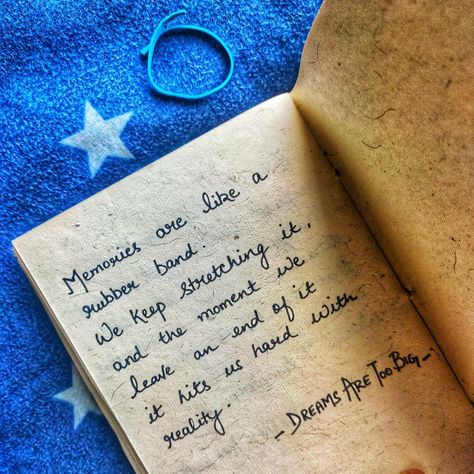 Memories are like a
rubber band.
We keep stretching it,
and the moment we
leave an end of it
it hits us hard with
reality.
- DREAMS ARE TOO BIG -